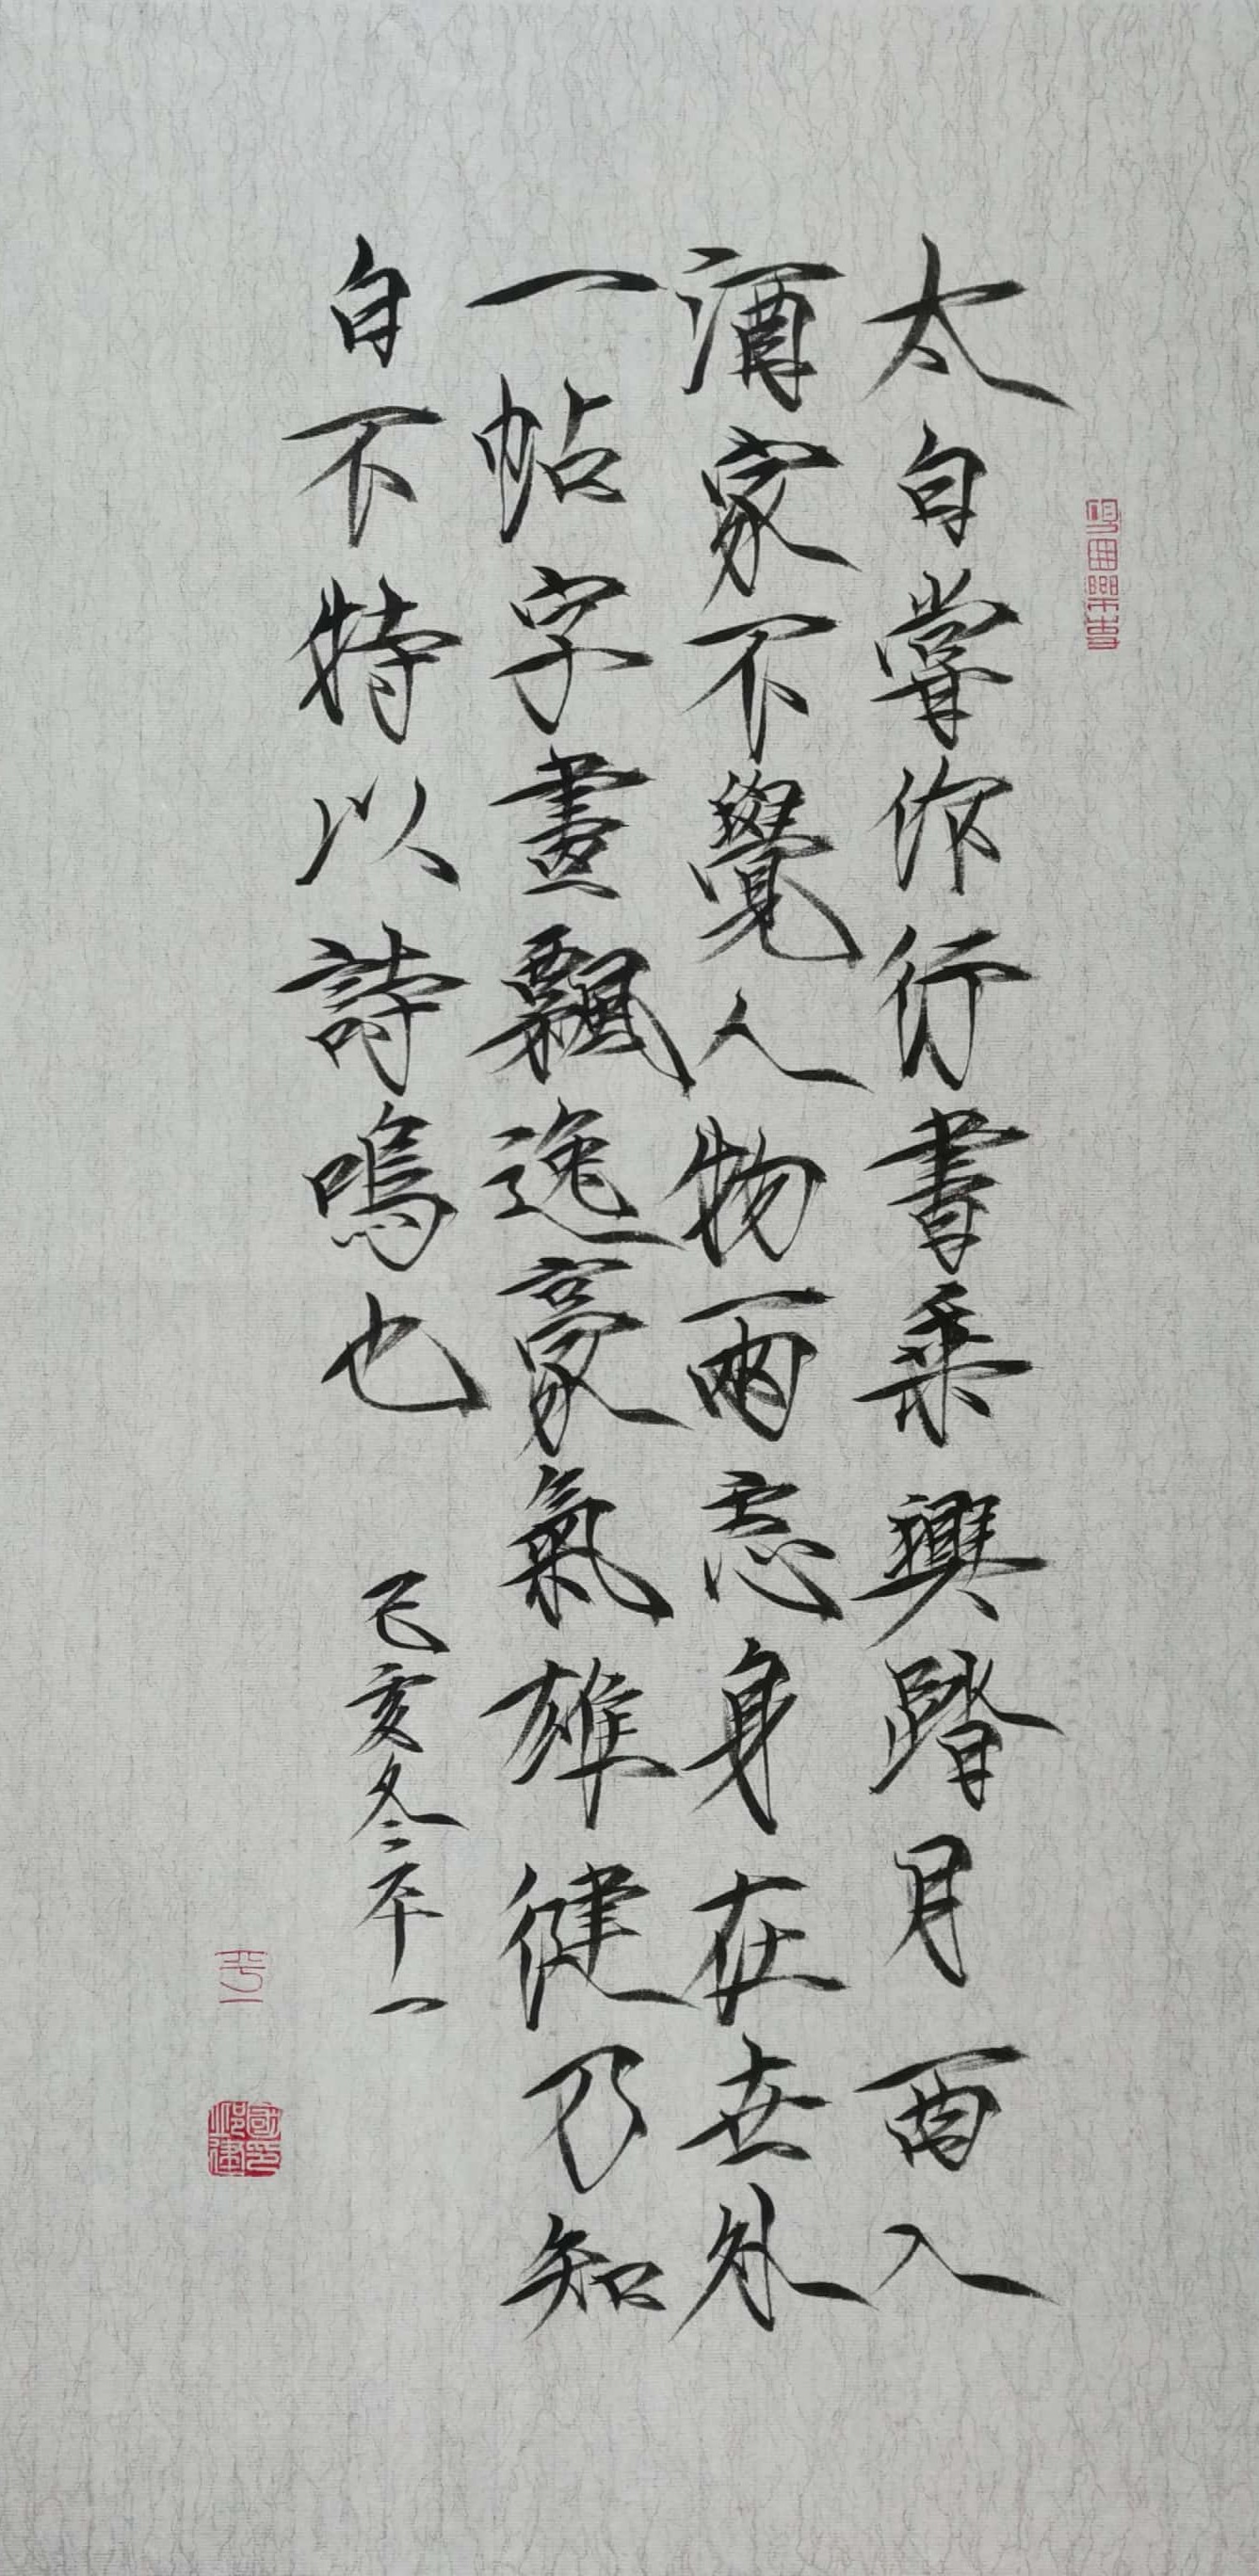 太白嘗作行書乘興踏月西入
酒家不覺人物兩忘身在世外
一帖字畫飄逸豪氣雄健乃知
白不特以詩鳴也
己亥冬平一
平一